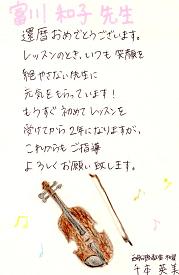 富川 和子 先生
還暦おめでとうございます。
レッスンのとき、いつも笑顔を
絶やさない先生に
元気をもらっています！
もうすぐ初めてレッスンを
受けてから2年になりますが、
これからもご指導
よろしくお願い致します。
千本 英美